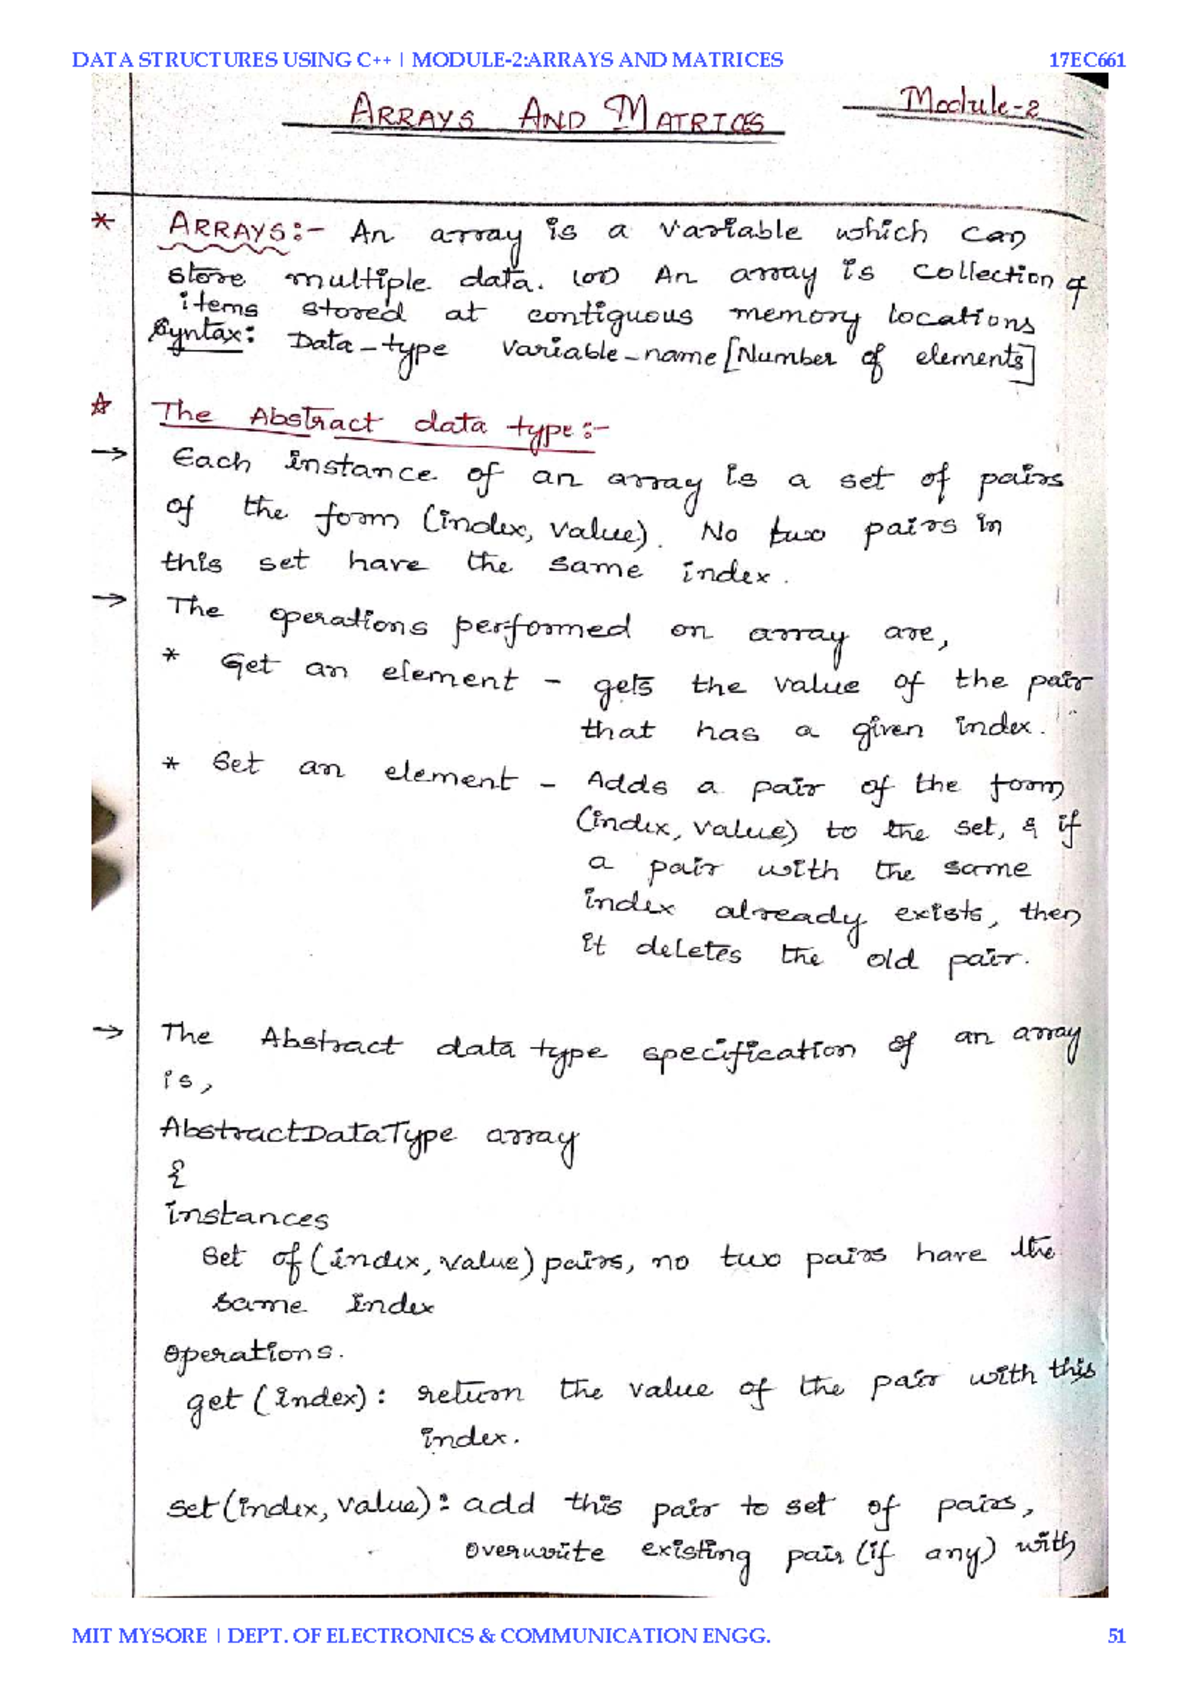 DATA STRUCTURES USING C++ | MODULE-2:ARRAYS AND MATRICES 17EC661
ARRAYS AND MATRICES Module-2
* ARRAYS:- An array is a variable which can
store multiple data. (or) An array is collection of
items stored at contiguous memory locations
Syntax: Data-type Variable-name [Number of elements]
☆ The Abstract data type:-
→ Each instance of an array is a set of pairs
of the form (index, value). No two pairs in
this set have the same index.
→ The operations performed on array are,
* Get an element - gets the value of the pair
that has a given index.
* Set an element - Adds a pair of the form
(index, value) to the set, & if
a pair with the same
index already exists, then
it deletes the old pair.
→ The Abstract data type specification of an array
is,
AbstractDataType array
{
instances
set of (index, value) pairs, no two pairs have the
same index
operations.
get (index): return the value of the pair with this
index.
set(index, value): add this pair to set of pairs,
overwrite existing pair (if any) with
MIT MYSORE | DEPT. OF ELECTRONICS & COMMUNICATION ENGG. 51